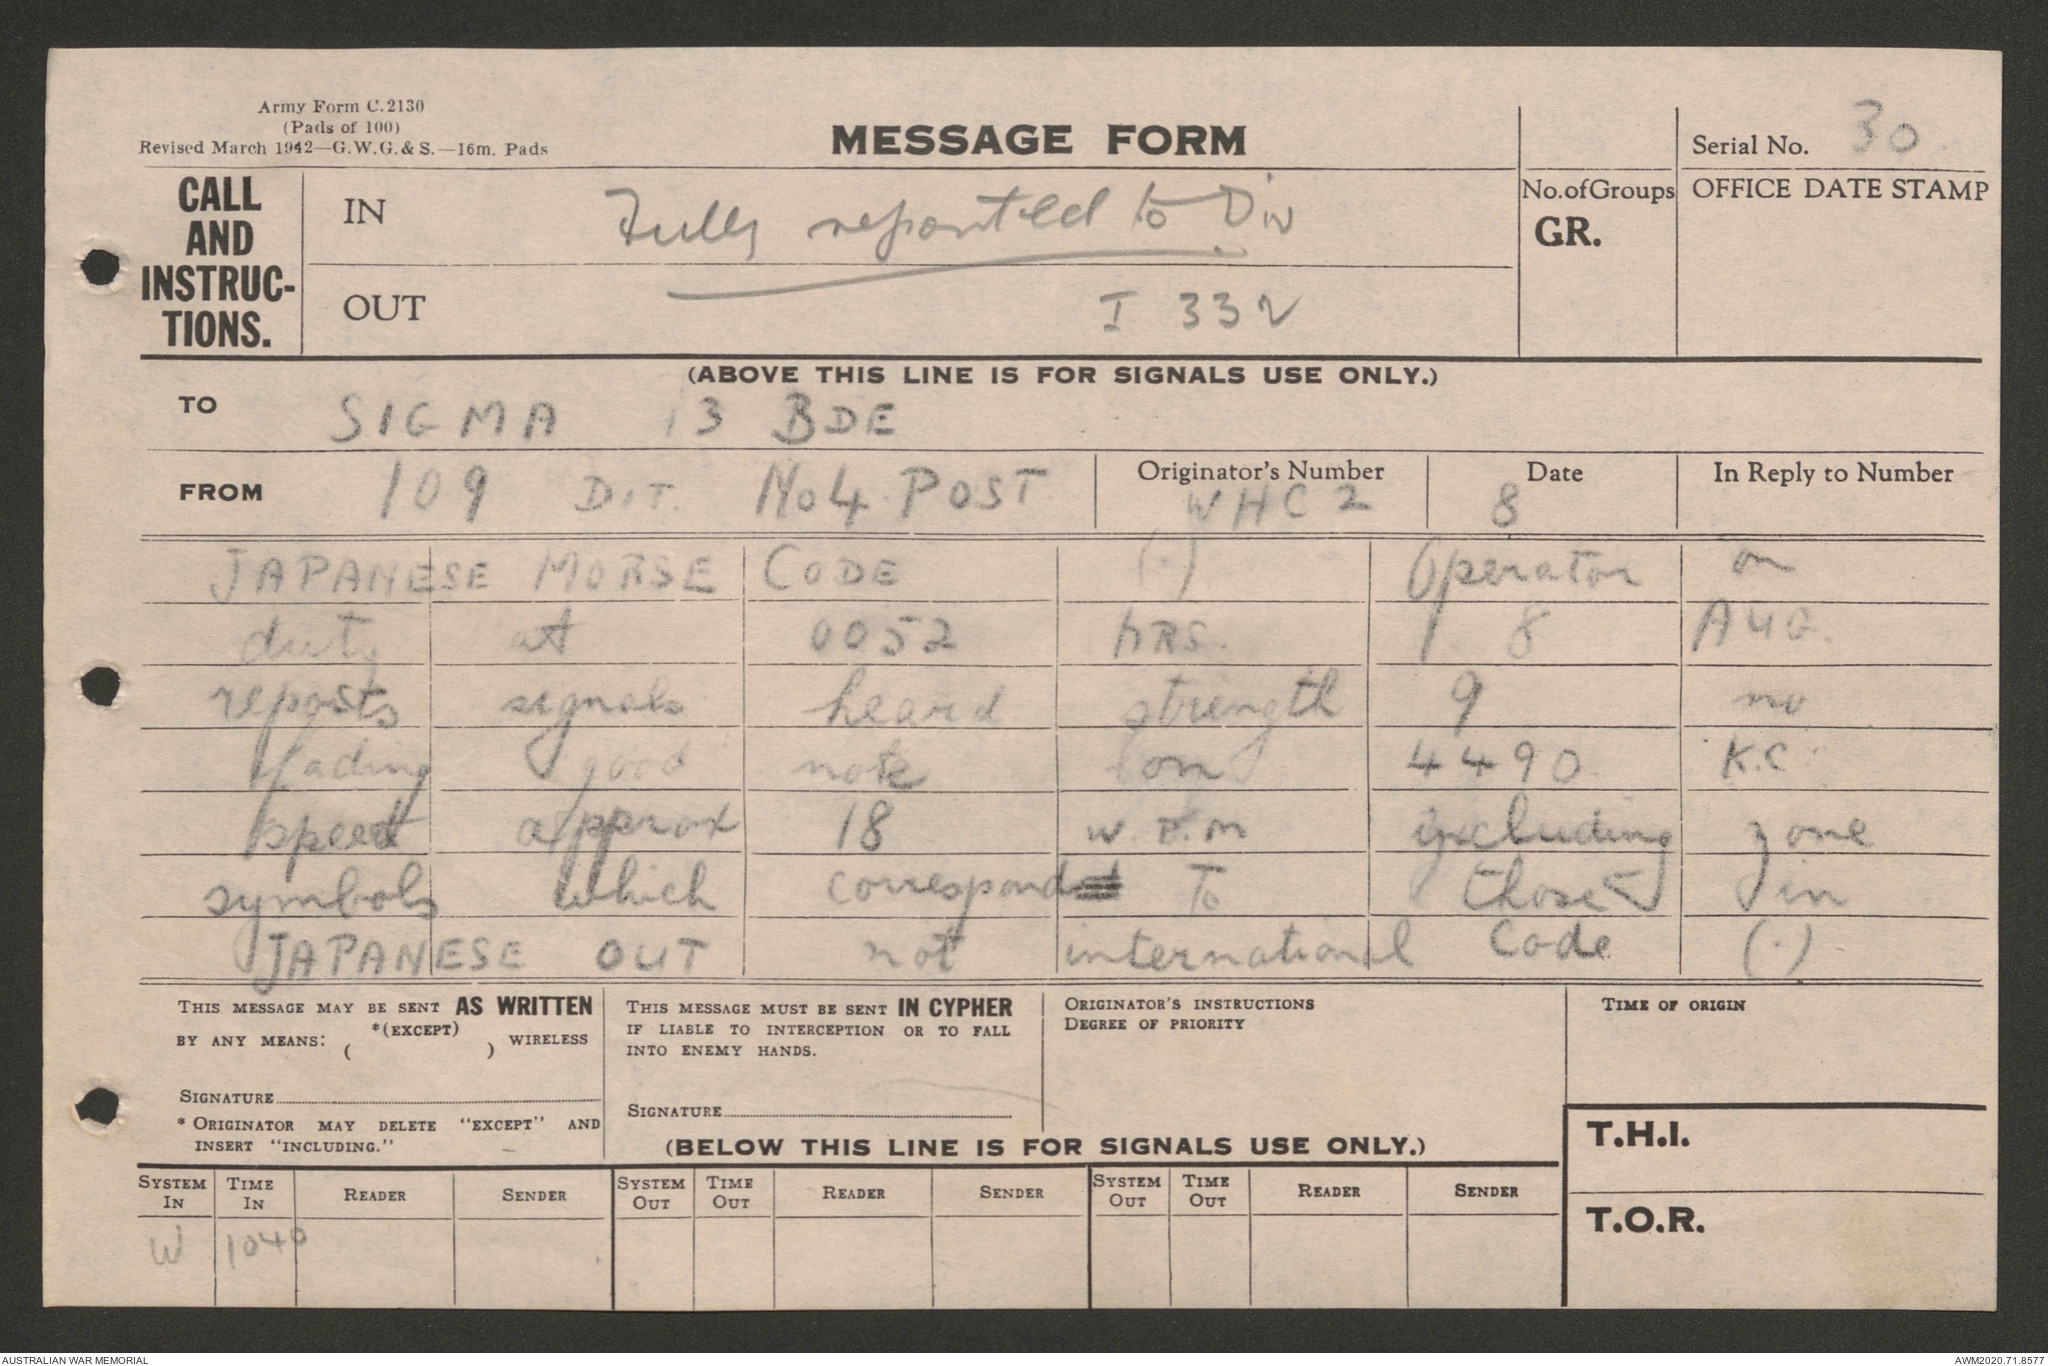 Army Form C.2130
(Pads of 100)
Revised March 1942—G.W.G.& S.—16m. Pads
MESSAGE FORM
Serial No. 30
CALL AND INSTRUC-TIONS.
IN Fully reported to Div
OUT I 332
No.ofGroups
GR.
OFFICE DATE STAMP
(ABOVE THIS LINE IS FOR SIGNALS USE ONLY.)
TO SIGMA 13 BDE
FROM 109 DIT. No4 POST
Originator's Number WHC2
Date 8
In Reply to Number
JAPANESE MORSE CODE (.) Operator on
duty at 0052 hRS. 8 AUG.
reposts signals heard strength 9 no
fading good note on 4490 K.C.
speed approx 18 W.P.M including zone
symbols which correspond To those in
JAPANESE OUT not international Code (.)
THIS MESSAGE MAY BE SENT AS WRITTEN
BY ANY MEANS: *(EXCEPT) ( ) WIRELESS
SIGNATURE
* ORIGINATOR MAY DELETE "EXCEPT" AND
INSERT "INCLUDING."
THIS MESSAGE MUST BE SENT IN CYPHER
IF LIABLE TO INTERCEPTION OR TO FALL
INTO ENEMY HANDS.
SIGNATURE
ORIGINATOR'S INSTRUCTIONS
DEGREE OF PRIORITY
TIME OF ORIGIN
(BELOW THIS LINE IS FOR SIGNALS USE ONLY.)
T.H.I.
T.O.R.
SYSTEM IN TIME IN READER SENDER SYSTEM OUT TIME OUT READER SENDER SYSTEM OUT TIME OUT READER SENDER
W 1040
AUSTRALIAN WAR MEMORIAL
AWM2020.71.8577